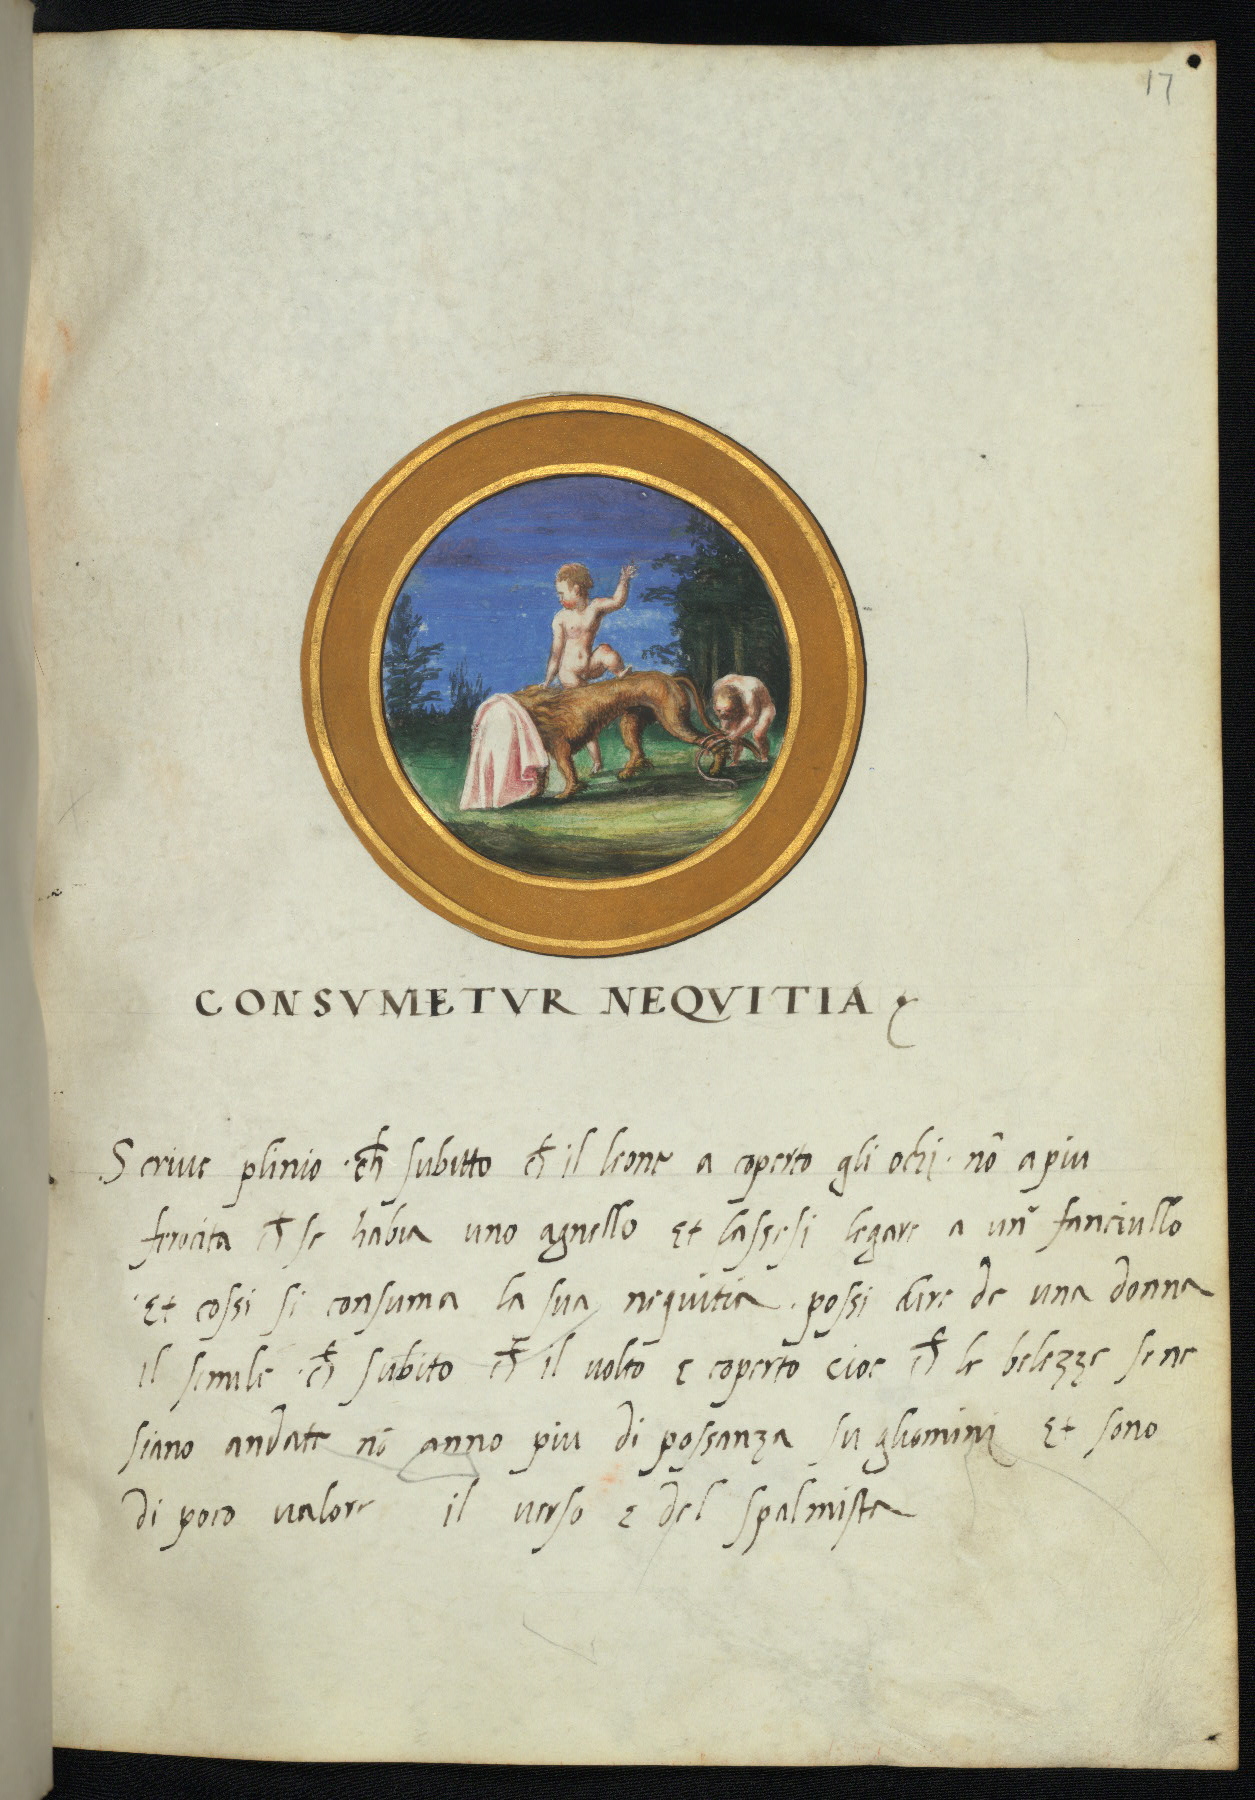 17
CONSVMETVR NEQVITIA
Scriue plinio · ch̄ subitto ch̄ il leone a coperto gli ochi · nō a piu
ferocita ch̄ se habia uno agnello et lassesi legare a un̄ fanciullo
·et cossi si consuma la sua nequitia · possi dire de una donna
il semile · ch̄ subito ch̄ il uolto e coperto cioe ch̄ le belezze se ne
siano andate nō anno piu di possanza su gliomini et sono
di poco ualore il uerso e del spalmista